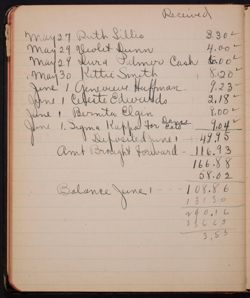 Received
May 27 Ruth Lillis 8.30 ✓
May 29 Violet Dunn 4.00 ✓
May 29 Dura Palmer Cash 6.00 ✓
May 30 Kittie Smith 8.20 ✓
June 1 Genevieve Huffman 9.23 ✓
June 1 Celeste Edwards 2.18 ✓
June 1 Bernita Elgin 8.00 ✓
June 1. Sigma Kappa for Dance 9.04 ✓
Deposited June 1 49.95
Amt Brought forward - 116.93
166.88
58.02
Balance June 1 108.86
131 30
240,16
3,53